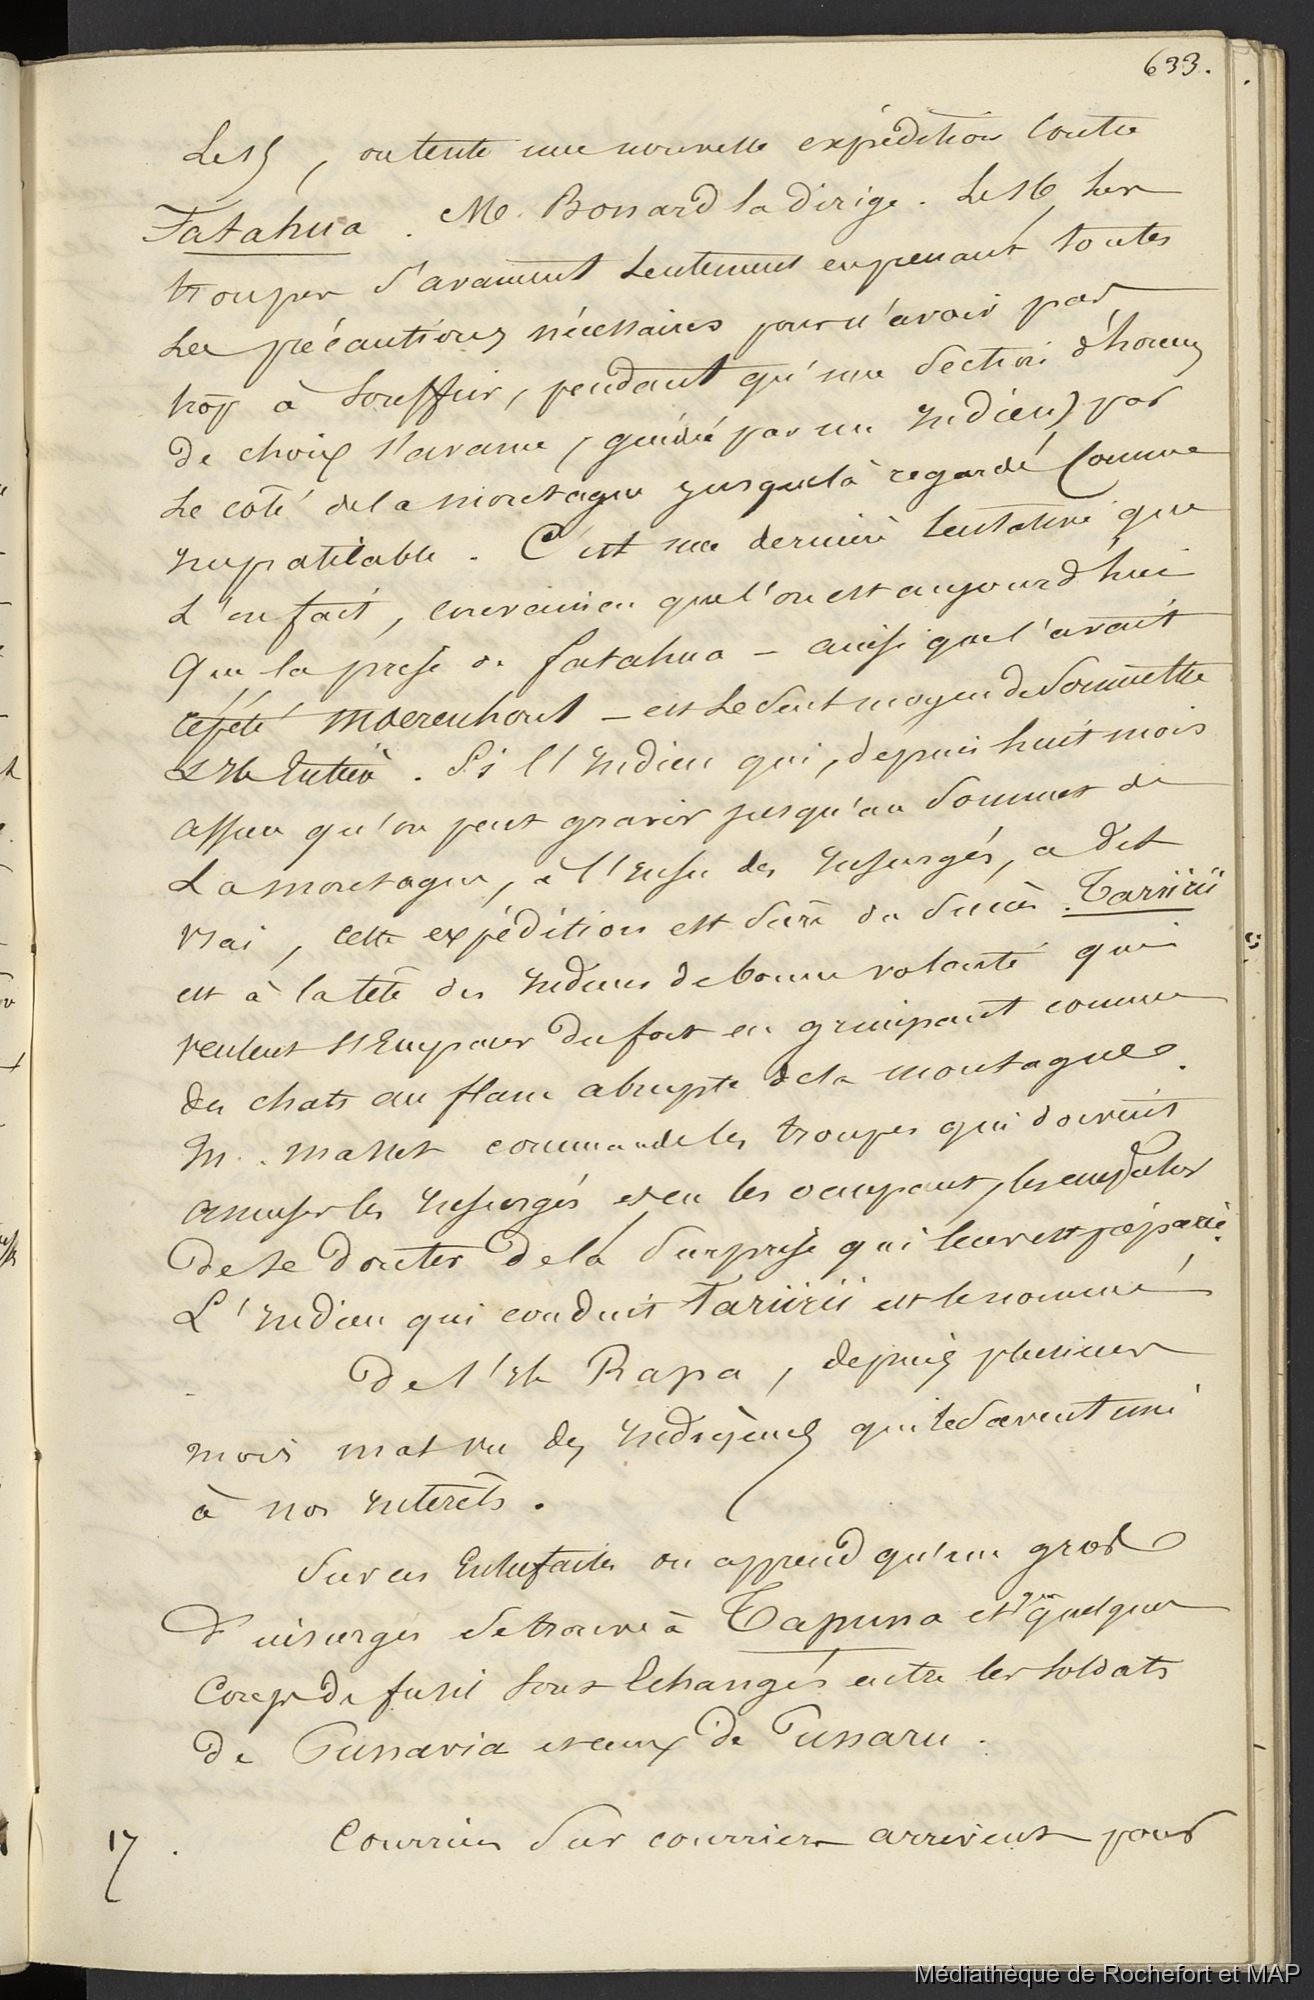 633.
Le 15, on tente une nouvelle expédition contre
Fatahua. M. Bonard la dirige. Le 16 les
troupes s'avancent lentement en prenant toutes
les précautions nécessaires pour n'avoir pas
trop à souffrir, pendant qu'une section d'hommes
de choix s'avance, guidée par un Indien, par
le coté de la montagne jusque là regardé comme
impraticable. C'est une dernière tentative que
l'on fait, convaincu que l'on est aujourd'hui
que la prise de Fatahua – ainsi que l'avait
répété Moerenhout – est le seul moyen de soumettre
l'Ile Entière. Si l'Indien qui, depuis huit mois
assure qu'on peut gravir jusqu'au sommet de
la montagne, à l'insu des Insurgés, a dit
vrai, cette expédition est sure du succès. Tariirii
est à la tête des Indiens de bonne volonté qui
veulent s'Emparer du fort en grimpant comme
des chats au flanc abrupte de la montagne.
M. Masset commande les troupes qui doivent
amuser les Insurgés et en les occupant, les empêcher
de se douter de la surprise qui leur est préparée.
L'Indien qui conduit Tariirii est le nommé
de l'Ile Rapa, depuis plusieurs
mois mal vu des Indigènes qui le savent uni
à nos Interêts.
Sur ces Entrefaites on apprend qu'un gros
d'insurgés se trouve à Tapuna et que quelques
coups de fusil sont échangés entre les soldats
de Punavia et ceux de Punaru.
17. Courriers sur courriers arrivent pour
Médiathèque de Rochefort et MAP